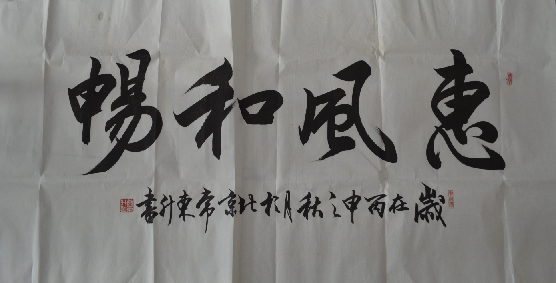 惠風和暢
歲在丙申之秋月於北京常東升書